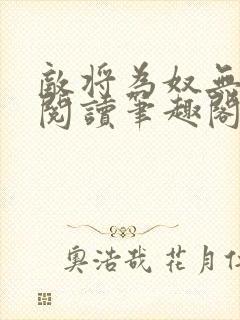 敵将為奴無
閱讀筆趣閣
奧浩哉 花月仁